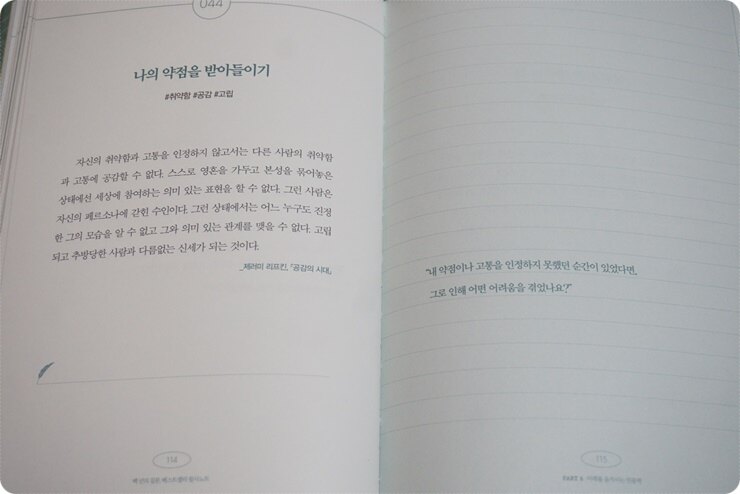 044
나의 약점을 받아들이기
#취약함 #공감 #고립
자신의 취약함과 고통을 인정하지 않고서는 다른 사람의 취약함
과 고통에 공감할 수 없다. 스스로 영혼을 가두고 본성을 묶어놓은
상태에선 세상에 참여하는 의미 있는 표현을 할 수 없다. 그런 사람은
자신의 페르소나에 갇힌 수인이다. 그런 상태에서는 어느 누구도 진정
한 그의 모습을 알 수 없고 그와 의미 있는 관계를 맺을 수 없다. 고립
되고 추방당한 사람과 다름없는 신세가 되는 것이다.
_제러미 리프킨, 『공감의 시대』
114
베스트셀러 필사노트
"내 약점이나 고통을 인정하지 못했던 순간이 있었다면,
그로 인해 어떤 어려움을 겪었나요?"
115
PART